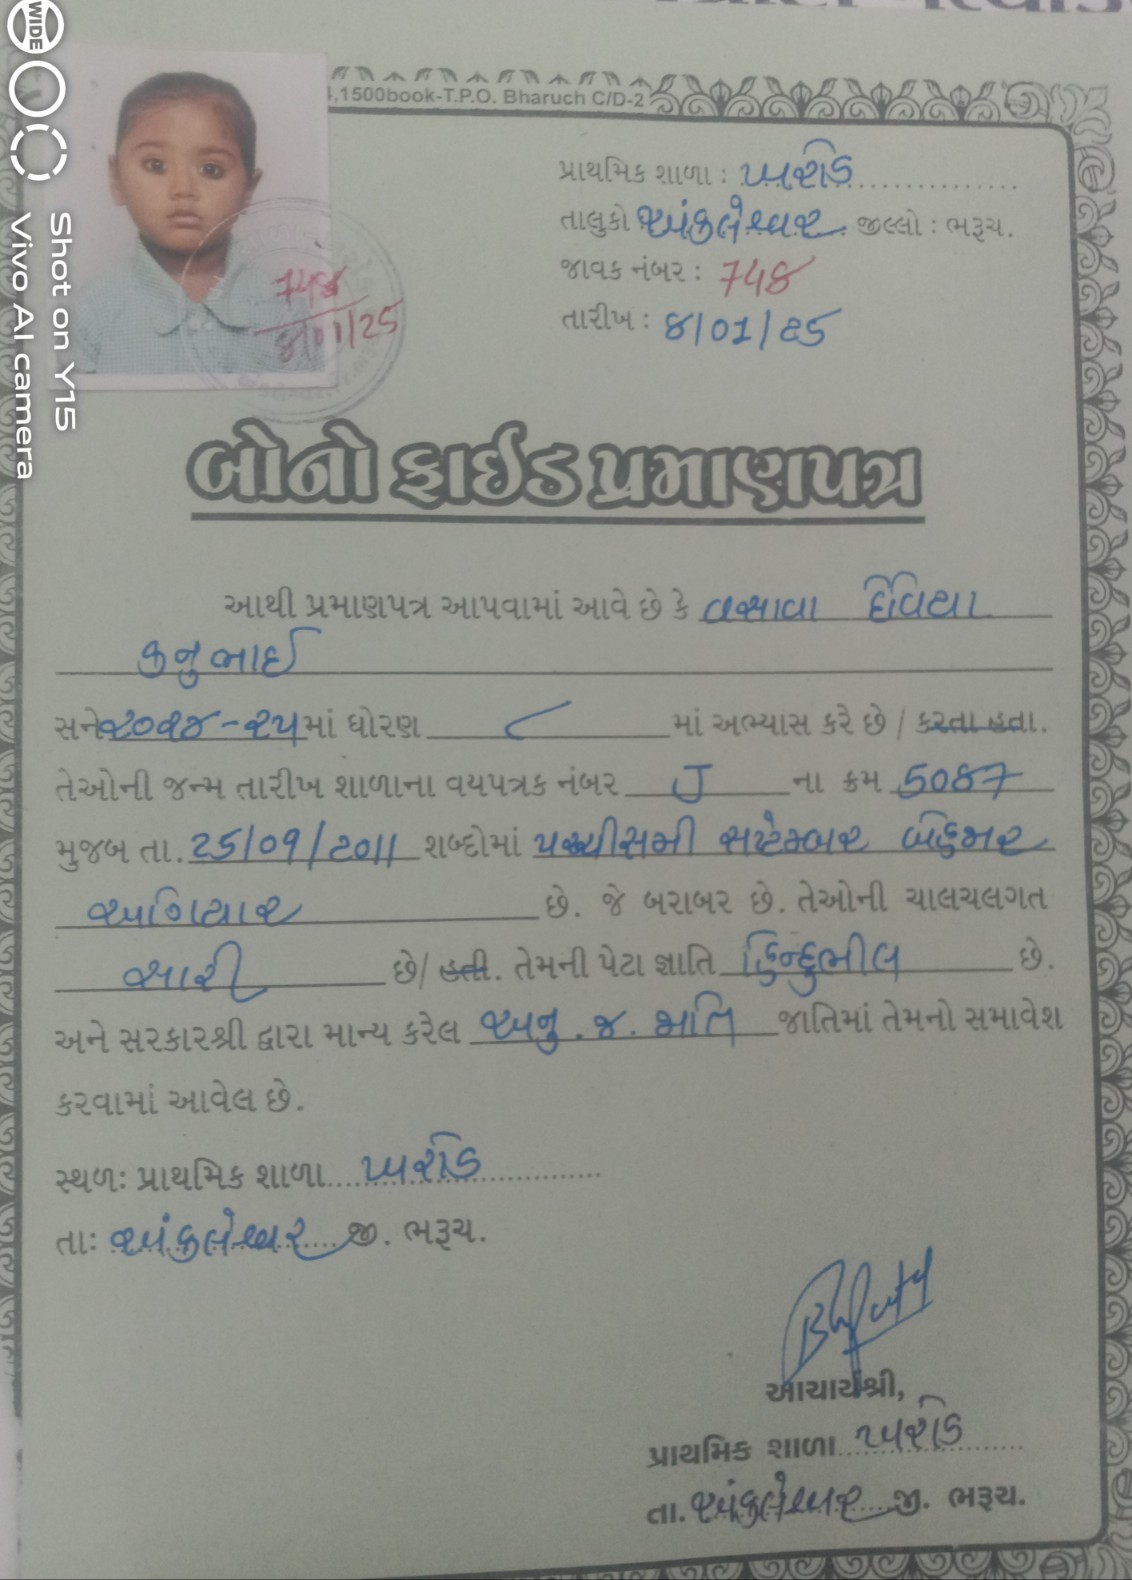 WIDE
Shot on Y15
Vivo AI camera
1500book-T.P.O. Bharuch C/D-2
પ્રાથમિક શાળા : ખરોડ
તાલુકો અંકલેશ્વર જીલ્લો : ભરૂચ.
જાવક નંબર : 748
તારીખ : ૪/01/25
748
૪/01/25
બોનો ફાઈડ પ્રમાણપત્ર
આથી પ્રમાણપત્ર આપવામાં આવે છે કે વસાવા દિવ્યા
કનુભાઈ
સને ૨૦૨૪-૨૫ માં ધોરણ ૮ માં અભ્યાસ કરે છે / કરતા હતા.
તેઓની જન્મ તારીખ શાળાના વયપત્રક નંબર J ના ક્રમ 5087
મુજબ તા. 25/09/2011 શબ્દોમાં પચ્ચીસમી સપ્ટેમ્બર બેહજાર
અગિયાર છે. જે બરાબર છે. તેઓની ચાલચલગત
સારી છે/ હતી. તેમની પેટા જ્ઞાતિ હિન્દુભીલ છે.
અને સરકારશ્રી દ્વારા માન્ય કરેલ અનુ. જ. જાતિ જાતિમાં તેમનો સમાવેશ
કરવામાં આવેલ છે.
સ્થળ: પ્રાથમિક શાળા ખરોડ
તા: અંકલેશ્વર જી. ભરૂચ.
આચાર્યશ્રી,
પ્રાથમિક શાળા ખરોડ
તા. અંકલેશ્વર જી. ભરૂચ.